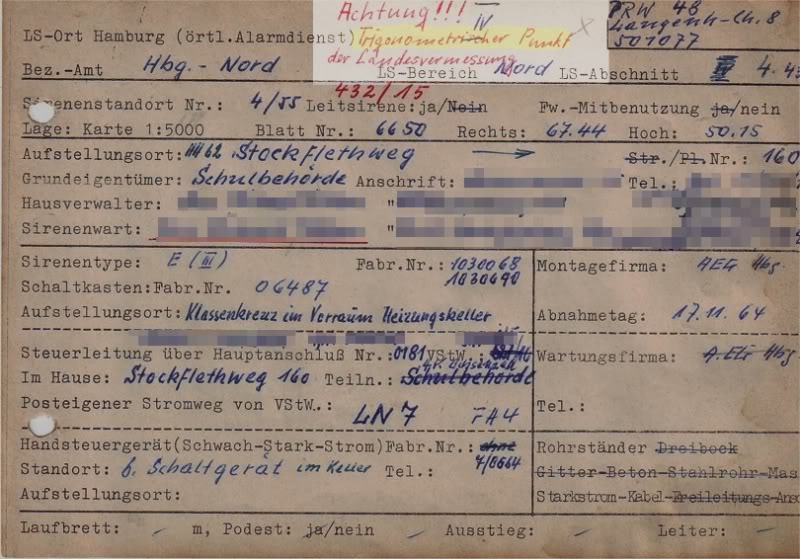 Achtung!!!
IV
PRW 48
Langenh-Ch. 8
501077
LS-Ort Hamburg (örtl.Alarmdienst) Trigonometrischer Punkt
der Landesvermessung
Bez.-Amt Hbg.- Nord LS-Bereich Nord LS-Abschnitt 4.4
432/15
Sirenenstandort Nr.: 4/55 Leitsirene: ja/Nein Fw.-Mitbenutzung ja/nein
Lage: Karte 1:5000 Blatt Nr.: 6650 Rechts: 67.44 Hoch: 50.15
Aufstellungsort: 62 Stockflethweg → Str./Pl.Nr.: 160
Grundeigentümer: Schulbehörde Anschrift: Tel.:
Hausverwalter: "
Sirenenwart: "
Sirenentype: E (III) Fabr.Nr.: 1030068 Montagefirma: AEG Hbg.
1030690
Schaltkasten:Fabr.Nr. 06487
Aufstellungsort: Klassenkreuz im Vorraum Heizungskeller Abnahmetag: 17.11.64
Steuerleitung über Hauptanschluß Nr.:0181 VStW.: Wartungsfirma: A.EG Hbg
Im Hause: Stockflethweg 160 Teiln.: Schulbehörde
Posteigener Stromweg von VStW.: LN 7 FA4 Tel.:
Handsteuergerät(Schwach-Stark-Strom)Fabr.Nr.: ohne Rohrständer Dreibock
7/8664
Standort: b. Schaltgerät im Keller Tel.: Gitter-Beton-Stahlrohr-Mas
Aufstellungsort: Starkstrom-Kabel-Freileitungs-Ans
Laufbrett: – m, Podest: ja/nein – Ausstieg: – Leiter: –